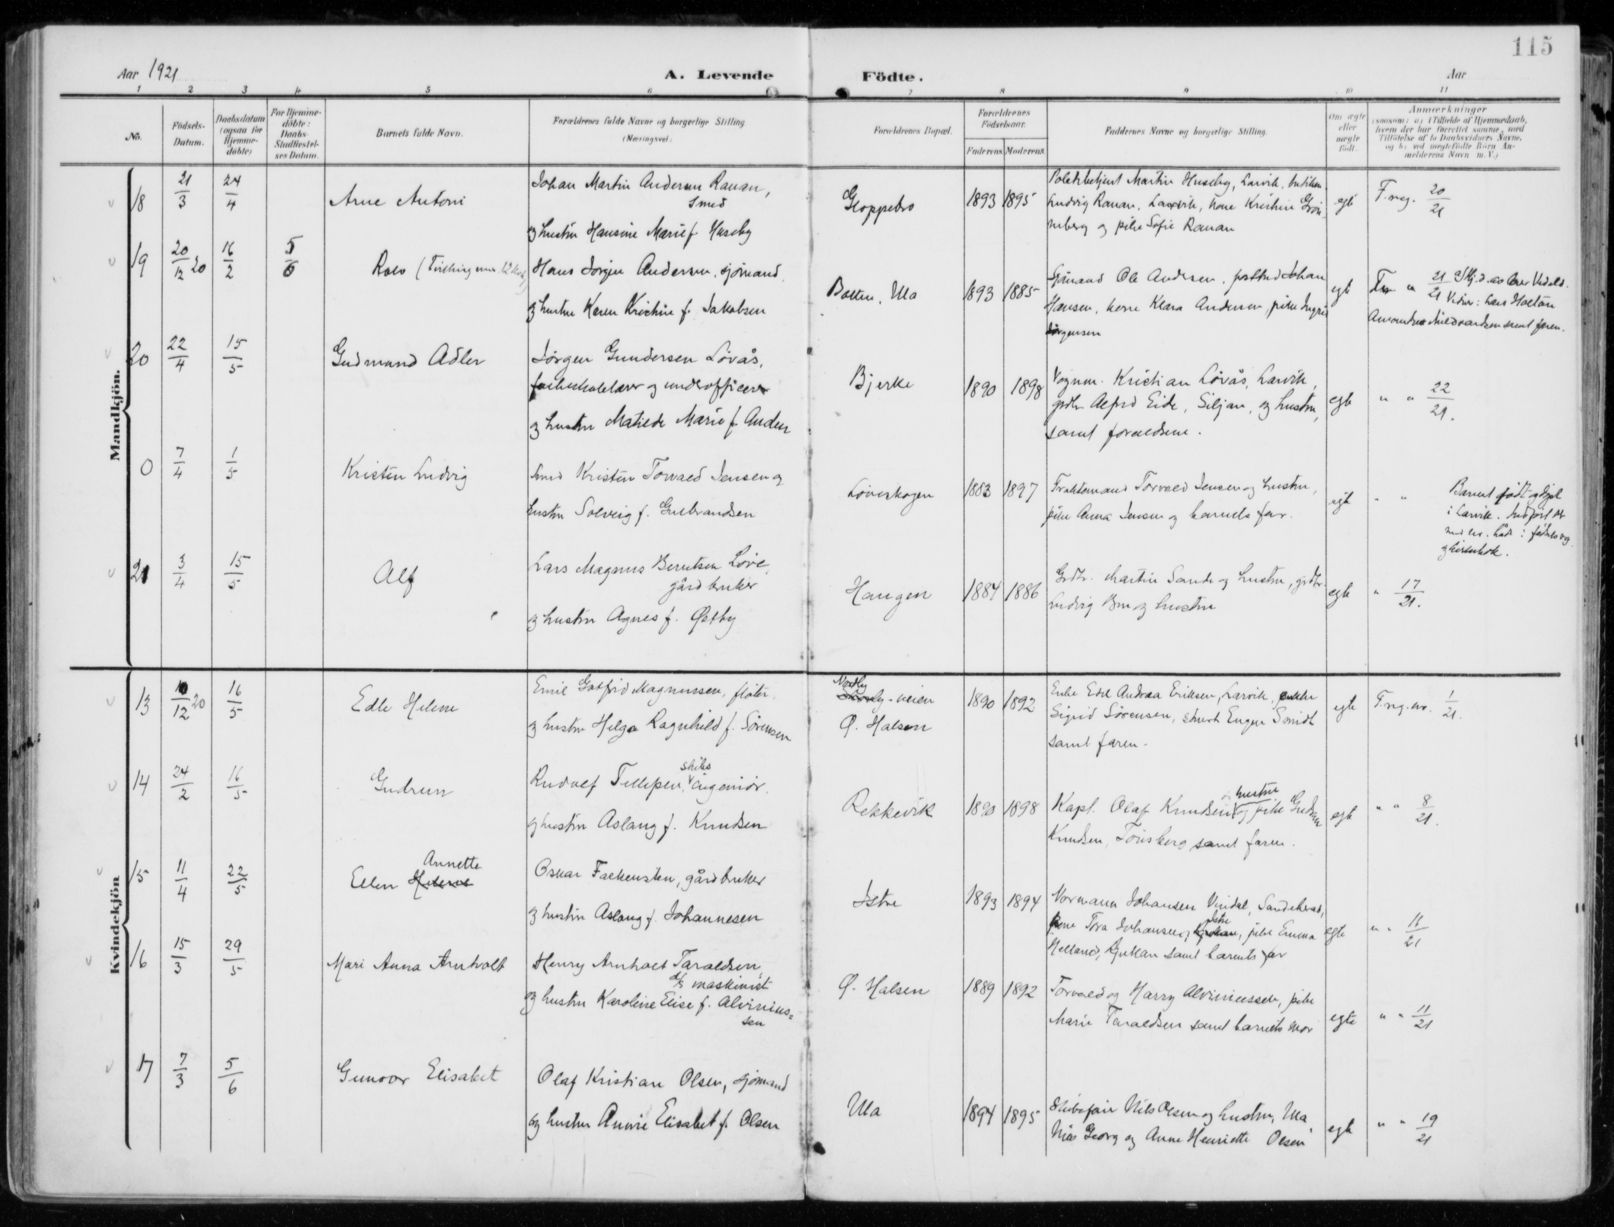 115
Aar 1921
A. Levende Födte.
Aar
1 2 3 4 5 6 7 8 9 10 11
No.
Födsels-Datum.
Daabsdatum (ogsaa for Hjemme-döbte)
For Hjemme-döbte: Daabs-Stadfæstel-ses Datum.
Barnets fulde Navn.
Forældrenes fulde Navne og borgerlige Stilling (Næringsvei).
Forældrenes Bopæl.
Forældrenes Födselsaar.
Faderens. Moderens.
Faddernes Navne og borgerlige Stilling.
Om ægte eller uægte födt.
Anmærkninger
Mandkjön.
18 21/3 24/4 Arne Antoni
Johan Martin Andersen Ranan, smed
og hustru Hansine Marie f. Huseby
Gloppebro 1893 1895
Politibetjent Martin Huseby, Larvik,
Ludvig Ranan, Larvik, kone Kristine
og pike Sofie Ranan
egte F.reg. 20/21
19 20/12 20 16/2 5/6 Rolv
Hans Jørgen Andersen, sjømand
og hustru Karen Kristine f. Jakobsen
Ula 1893 1885
Sjømand Ole Andersen, Johan
Hansen, kone Klara Andersen pike Ingrid
Jørgensen
egte 21/21
20 22/4 15/5 Gudmund Adler
Jørgen Gundersen Løvås,
og underofficer
og hustru Matilde Marie f. Anden
Bjerke 1890 1898
Vognm. Kristian Løvås, Larvik,
grdbr. Alfred Eide, Siljan, og hustru,
samt forældrene.
egte " " 22/21.
0 7/4 1/5 Kristen Ludvig
Smed Kristen Torvald Jensen og
hustru Solveig f. Gulbrandsen
Løveskogen 1883 1897
Torvald Jensen og hustru,
pike Anna Jensen og barnets far.
egte " "
Barnet født og døpt
i Larvik.
21 3/4 15/5 Alf
Lars Magnus Berntsen Løve
gårdbruker
og hustru Agnes f. Østby
Haugen 1884 1886
Grdbr. Martin Sande og hustru, grdbr.
Ludvig Bru og hustru
egte " 17/21.
Kvindekjön
13 10/12 20 16/5 Edle Helene
Emil Gotfrid Magnussen, fløter
og hustru Helga Ragnhild f. Sørensen
Nordby-veien
Ø. Halsen 1890 1892
Enke Edel Andrea Eriksen, Larvik, enke
Sigrid Sørensen, Smidt
samt faren.
egte F.reg.nr. 1/21.
14 24/2 16/5 Gudrun
Rudolf Tellefsen, skibsingeniør
og hustru Aslaug f. Knudsen
Rekkevik 1890 1898
Kapt. Olaf Knudsen hustru og pike Gudrun
Knudsen, Tønsberg, samt faren.
egte " " 8/21.
15 11/4 22/5 Ellen Annette
Oskar Falkensten, gårdbruker
og hustru Aslaug f. Johannesen
Istre 1893 1894
Normann Johansen Vindal, Sandeherad,
kone Tora Johansen, Istre, pike Emma
Helland, samt barnets far
egte " " 11/21
16 15/3 29/5 Mari Anna Arnholt
Henry Arnholt Taraldsen,
maskinist
og hustru Karoline Elise f. Alvinius=
sen
Ø. Halsen 1889 1892
Torvald og Harry Alviniussen, pike
Marie Taraldsen samt barnets mor
egte " " 11/21
17 7/3 5/6 Gunvor Elisabet
Olaf Kristian Olsen, sjømand
og hustru Anine Elisabet f. Olsen
Ula 1894 1895
Nils Olsen og hustru, Ula,
Nils Georg og Anne Henriette Olsen
egte " " 19/21